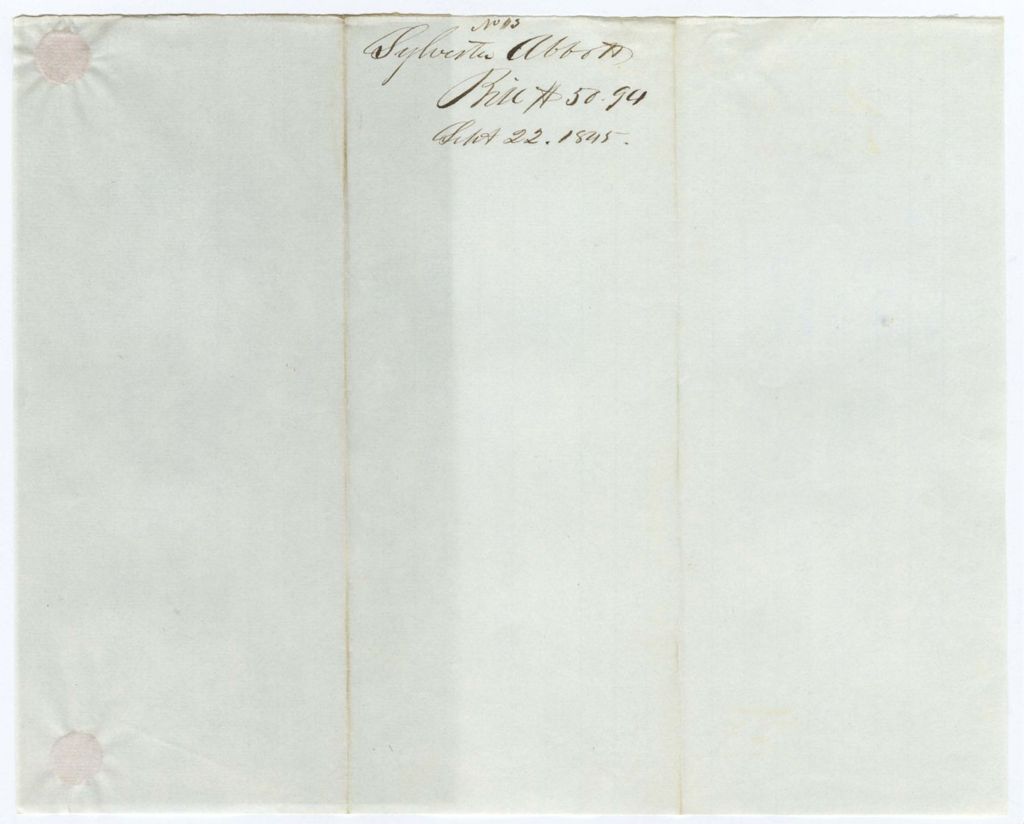 No 13
Sylvester Abbott
Bill $50.94
Sept 22. 1845.